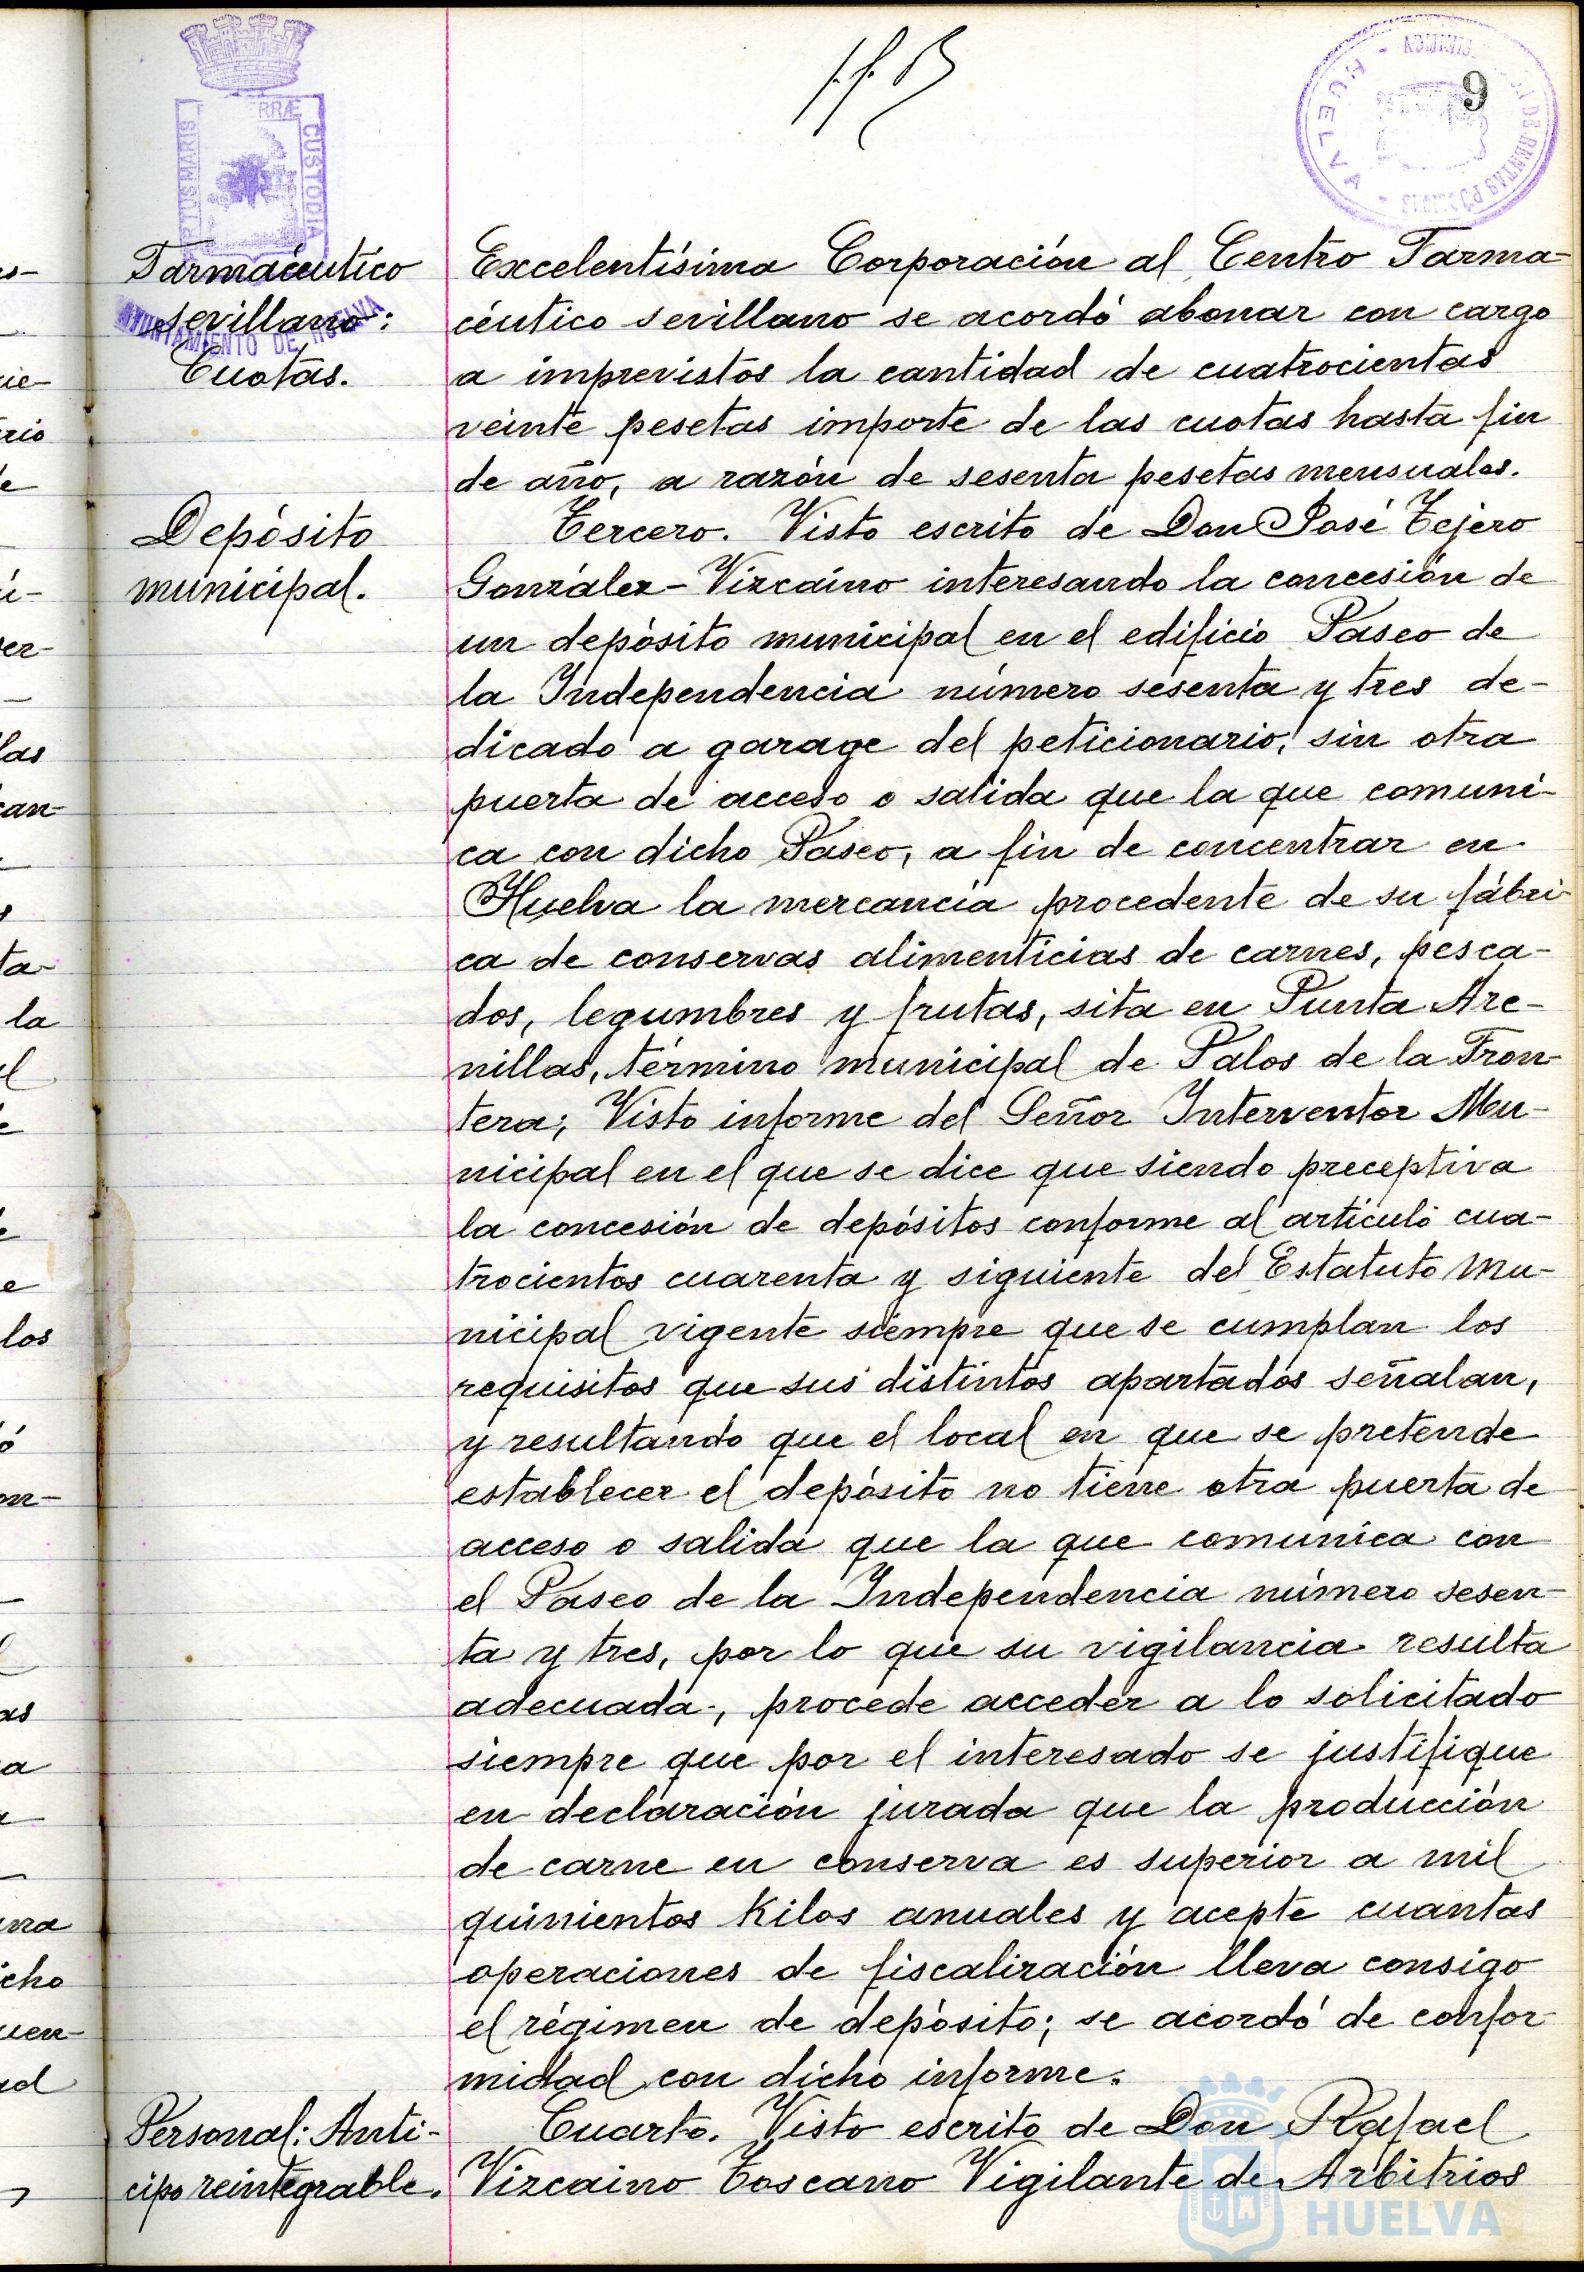 9
RRÆ
CUSTODIA
TUS MARIS
AYUNTAMIENTO DE HUELVA
HUELVA
DE RENTAS
Farmacéutico
sevillano:
Cuotas.
Excelentísima Corporación al Centro Farma-
céutico sevillano se acordó abonar con cargo
a imprevistos la cantidad de cuatrocientas
veinte pesetas importe de las cuotas hasta fin
de año, a razón de sesenta pesetas mensuales.
Depósito
municipal.
Tercero. Visto escrito de Don José Tejero
González-Vizcaíno interesando la concesión de
un depósito municipal en el edificio Paseo de
la Independencia número sesenta y tres de-
dicado a garage del peticionario, sin otra
puerta de acceso o salida que la que comuni-
ca con dicho Paseo, a fin de concentrar en
Huelva la mercancía procedente de su fábri-
ca de conservas alimenticias de carnes, pesca-
dos, legumbres y frutas, sita en Punta Are-
nillas, término municipal de Palos de la Fron-
tera; Visto informe del Señor Interventor Mu-
nicipal en el que se dice que siendo preceptiva
la concesión de depósitos conforme al artículo cua-
trocientos cuarenta y siguiente del Estatuto Mu-
nicipal vigente siempre que se cumplan los
requisitos que sus distintos apartados señalan,
y resultando que el local en que se pretende
establecer el depósito no tiene otra puerta de
acceso o salida que la que comunica con
el Paseo de la Independencia número sesen-
ta y tres, por lo que su vigilancia resulta
adecuada, procede acceder a lo solicitado
siempre que por el interesado se justifique
en declaración jurada que la producción
de carne en conserva es superior a mil
quinientos Kilos anuales y acepte cuantas
operaciones de fiscalización lleva consigo
el régimen de depósito; se acordó de confor-
midad con dicho informe.
Personal: Anti-
cipo reintegrable.
Cuarto. Visto escrito de Don Rafael
Vizcaino Toscano Vigilante de Arbitrios
HUELVA